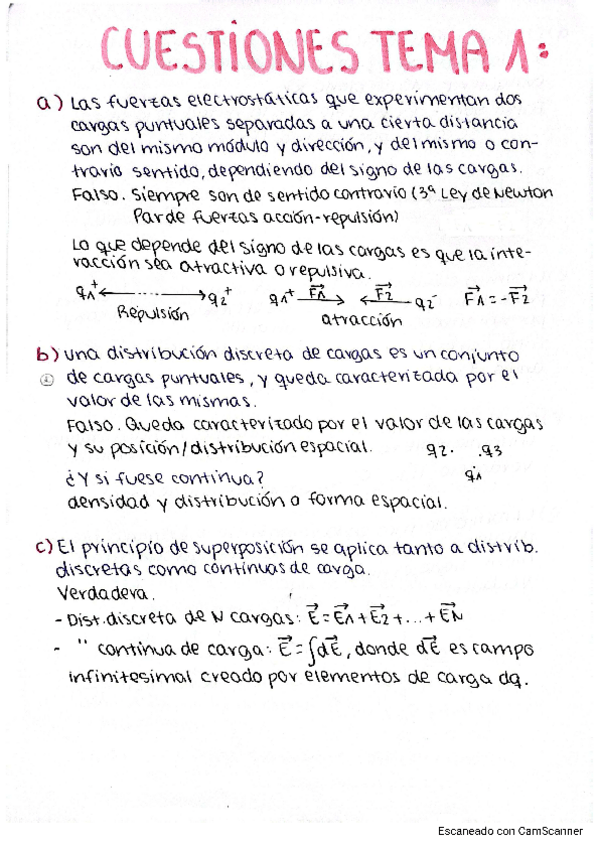 CUESTIONES TEMA 1:
a) Las fuerzas electrostáticas que experimentan dos
cargas puntuales separadas a una cierta distancia
son del mismo módulo y dirección, y del mismo o con-
trario sentido, dependiendo del signo de las cargas.
Falso. Siempre son de sentido contrario (3ª Ley de Newton
Par de fuerzas acción-repulsión)
Lo que depende del signo de las cargas es que la inte-
racción sea atractiva o repulsiva.
q1+ ←----→ q2+ q1+ F1→ ←F2 q2- F⃗1 = -F⃗2
Repulsión atracción
b) una distribución discreta de cargas es un conjunto
de cargas puntuales, y queda caracterizada por el
valor de las mismas.
Falso. Queda caracterizado por el valor de las cargas
y su posición/distribución espacial. q2. .q3
¿Y si fuese continua? q1
densidad y distribución o forma espacial.
c) El principio de superposición se aplica tanto a distrib.
discretas como continuas de carga.
Verdadera.
- Dist. discreta de N cargas: E⃗ = E⃗1 + E⃗2 + ... + E⃗N
- " continua de carga: E⃗ = ∫dE⃗, donde dE⃗ es campo
infinitesimal creado por elementos de carga dq.
Escaneado con CamScanner